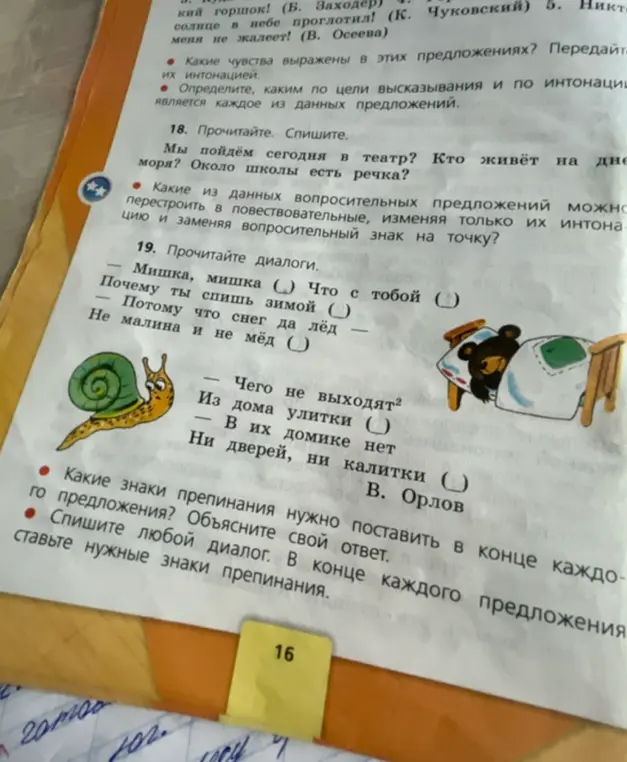 кий горшок! (Б. Заходер)
солнце в небе проглотил! (К. Чуковский) 5. Никт
меня не жалеет! (В. Осеева)
• Какие чувства выражены в этих предложениях? Передайт
их интонацией.
• Определите, каким по цели высказывания и по интонации
является каждое из данных предложений.
18. Прочитайте. Спишите.
Мы пойдём сегодня в театр? Кто живёт на дне
моря? Около школы есть речка?
• Какие из данных вопросительных предложений можно
перестроить в повествовательные, изменяя только их интона
цию и заменяя вопросительный знак на точку?
19. Прочитайте диалоги.
— Мишка, мишка (_) Что с тобой (_)
Почему ты спишь зимой (_)
— Потому что снег да лёд —
Не малина и не мёд (_)
— Чего не выходят²
Из дома улитки (_)
— В их домике нет
Ни дверей, ни калитки (_)
В. Орлов
• Какие знаки препинания нужно поставить в конце каждо-
го предложения? Объясните свой ответ.
• Спишите любой диалог. В конце каждого предложения
ставьте нужные знаки препинания.
16